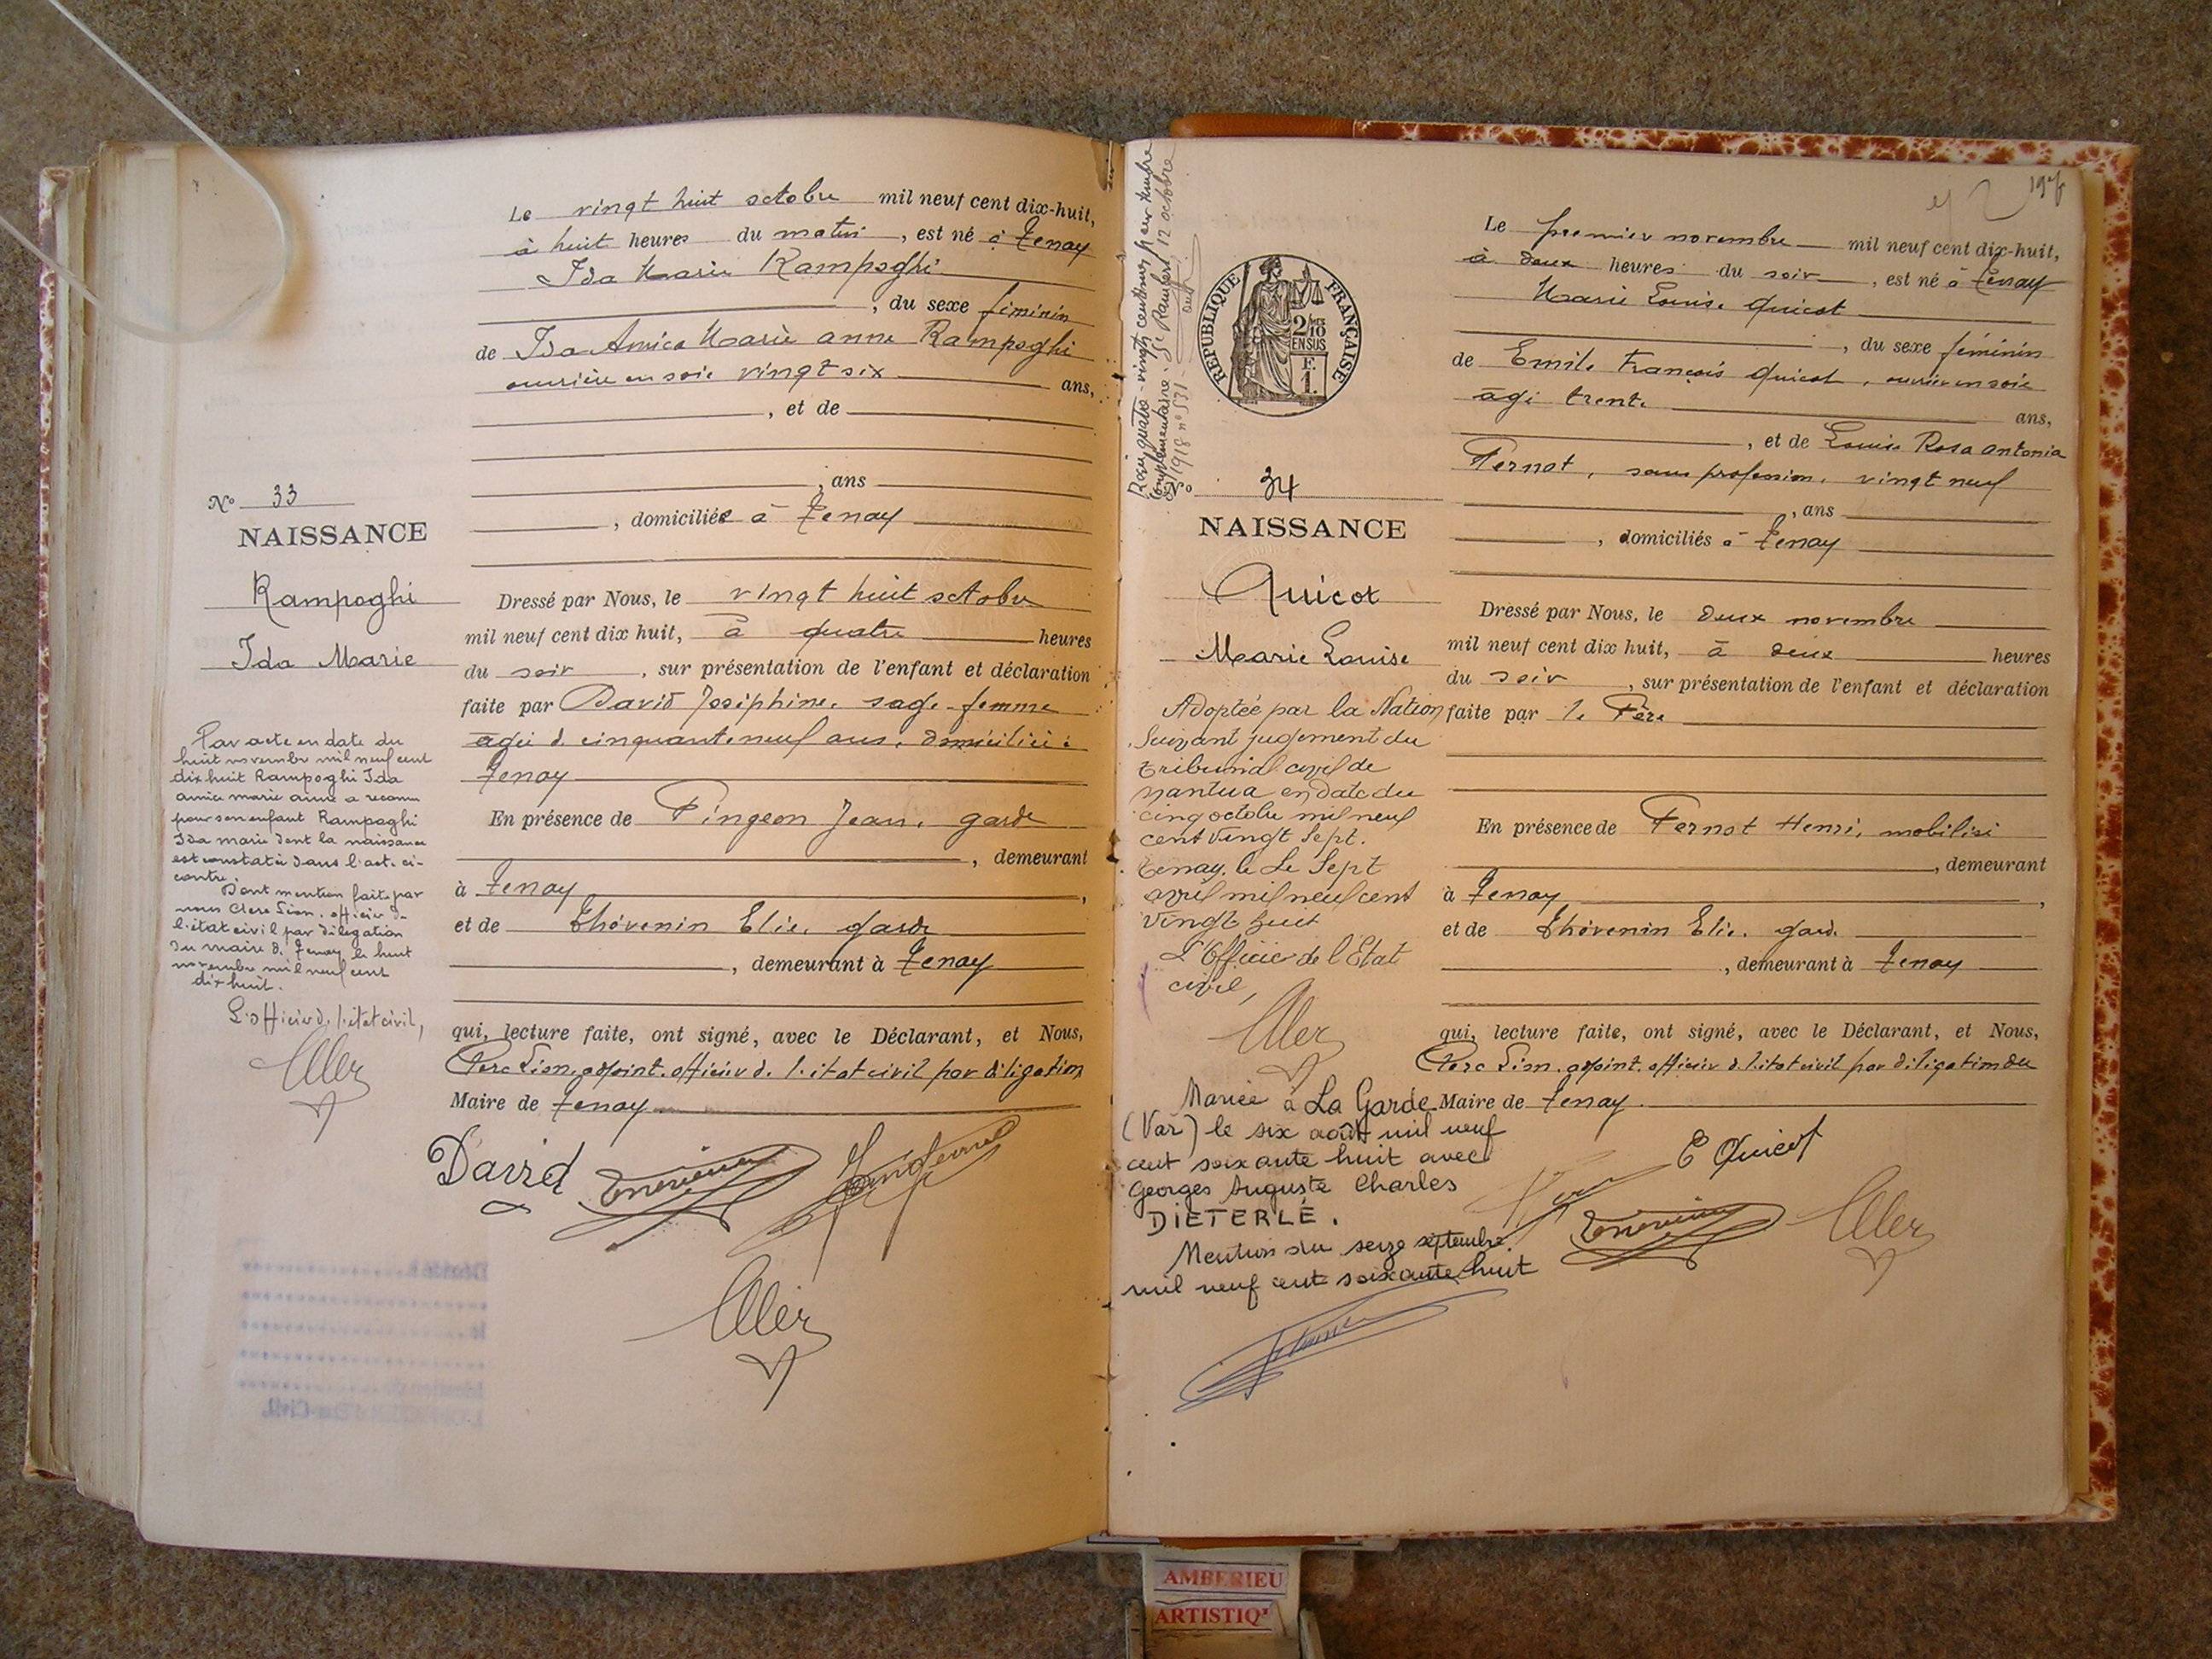 Le vingt huit octobre mil neuf cent dix-huit,
à huit heures du matin, est né à Tenay
Ida Marie Rampoghi
, du sexe féminin
de Ida Amica Marie anne Rampoghi
ouvrière en soie vingt six ans,
, et de
, ans
, domiciliée à Tenay
N° 33
NAISSANCE
Rampoghi
Ida Marie
Dressé par Nous, le vingt huit octobre
mil neuf cent dix huit, à quatre heures
du soir, sur présentation de l'enfant et déclaration
faite par David Joséphine, sage-femme
agée de cinquante neuf ans, domiciliée à
Tenay
En présence de Pingeon Jean, garde
, demeurant
à Tenay,
et de Thévenin Elie, garde
, demeurant à Tenay
qui, lecture faite, ont signé, avec le Déclarant, et Nous,
Clerc Léon adjoint officier de l'état civil par délégation
Maire de Tenay
David
Par acte en date du
huit novembre mil neuf cent
dix huit Rampoghi Ida
amica marie anne a reconnu
pour son enfant Rampoghi
Ida marie dont la naissance
est constatée dans l'acte ci-
contre.
Dont mention faite par
nous Clerc Léon, officier de
l'état civil par délégation
du maire de Tenay le huit
novembre mil neuf cent
dix huit.
L'officier de l'état civil,
Reçu quatre-vingts centimes pour timbre
complémentaire. St Rambert, 12 octobre
1918 n° 531
RÉPUBLIQUE FRANÇAISE
2/10
EN SUS
F.
1
Le premier novembre mil neuf cent dix-huit,
à deux heures du soir, est né à Tenay
Marie Louise Quicot
, du sexe féminin
de Emile François Quicot, ouvrier en soie
âgé trente ans,
, et de Louise Rosa Antonia
Pernot, sans profession, vingt neuf
, ans
, domiciliés à Tenay
N° 34
NAISSANCE
Quicot
Marie Louise
Dressé par Nous, le deux novembre
mil neuf cent dix huit, à deux heures
du soir, sur présentation de l'enfant et déclaration
faite par le Père
En présence de Pernot Henri, mobilisé
, demeurant
à Tenay,
et de Thévenin Elie, garde
, demeurant à Tenay
qui, lecture faite, ont signé, avec le Déclarant, et Nous,
Clerc Léon adjoint officier de l'état civil par délégation du
Maire de Tenay
E Quicot
Adoptée par la Nation
suivant jugement du
tribunal civil de
Nantua en date du
cinq octobre mil neuf
cent vingt sept.
Tenay, le Le Sept
avril mil neuf cent
vingt huit
L'Officier de l'Etat
civil,
Mariée à La Garde
(Var) le six août mil neuf
cent soixante huit avec
Georges Auguste Charles
DIETERLÉ.
Mention du seize septembre
mil neuf cent soixante huit
AMBERIEU
ARTISTIQ'